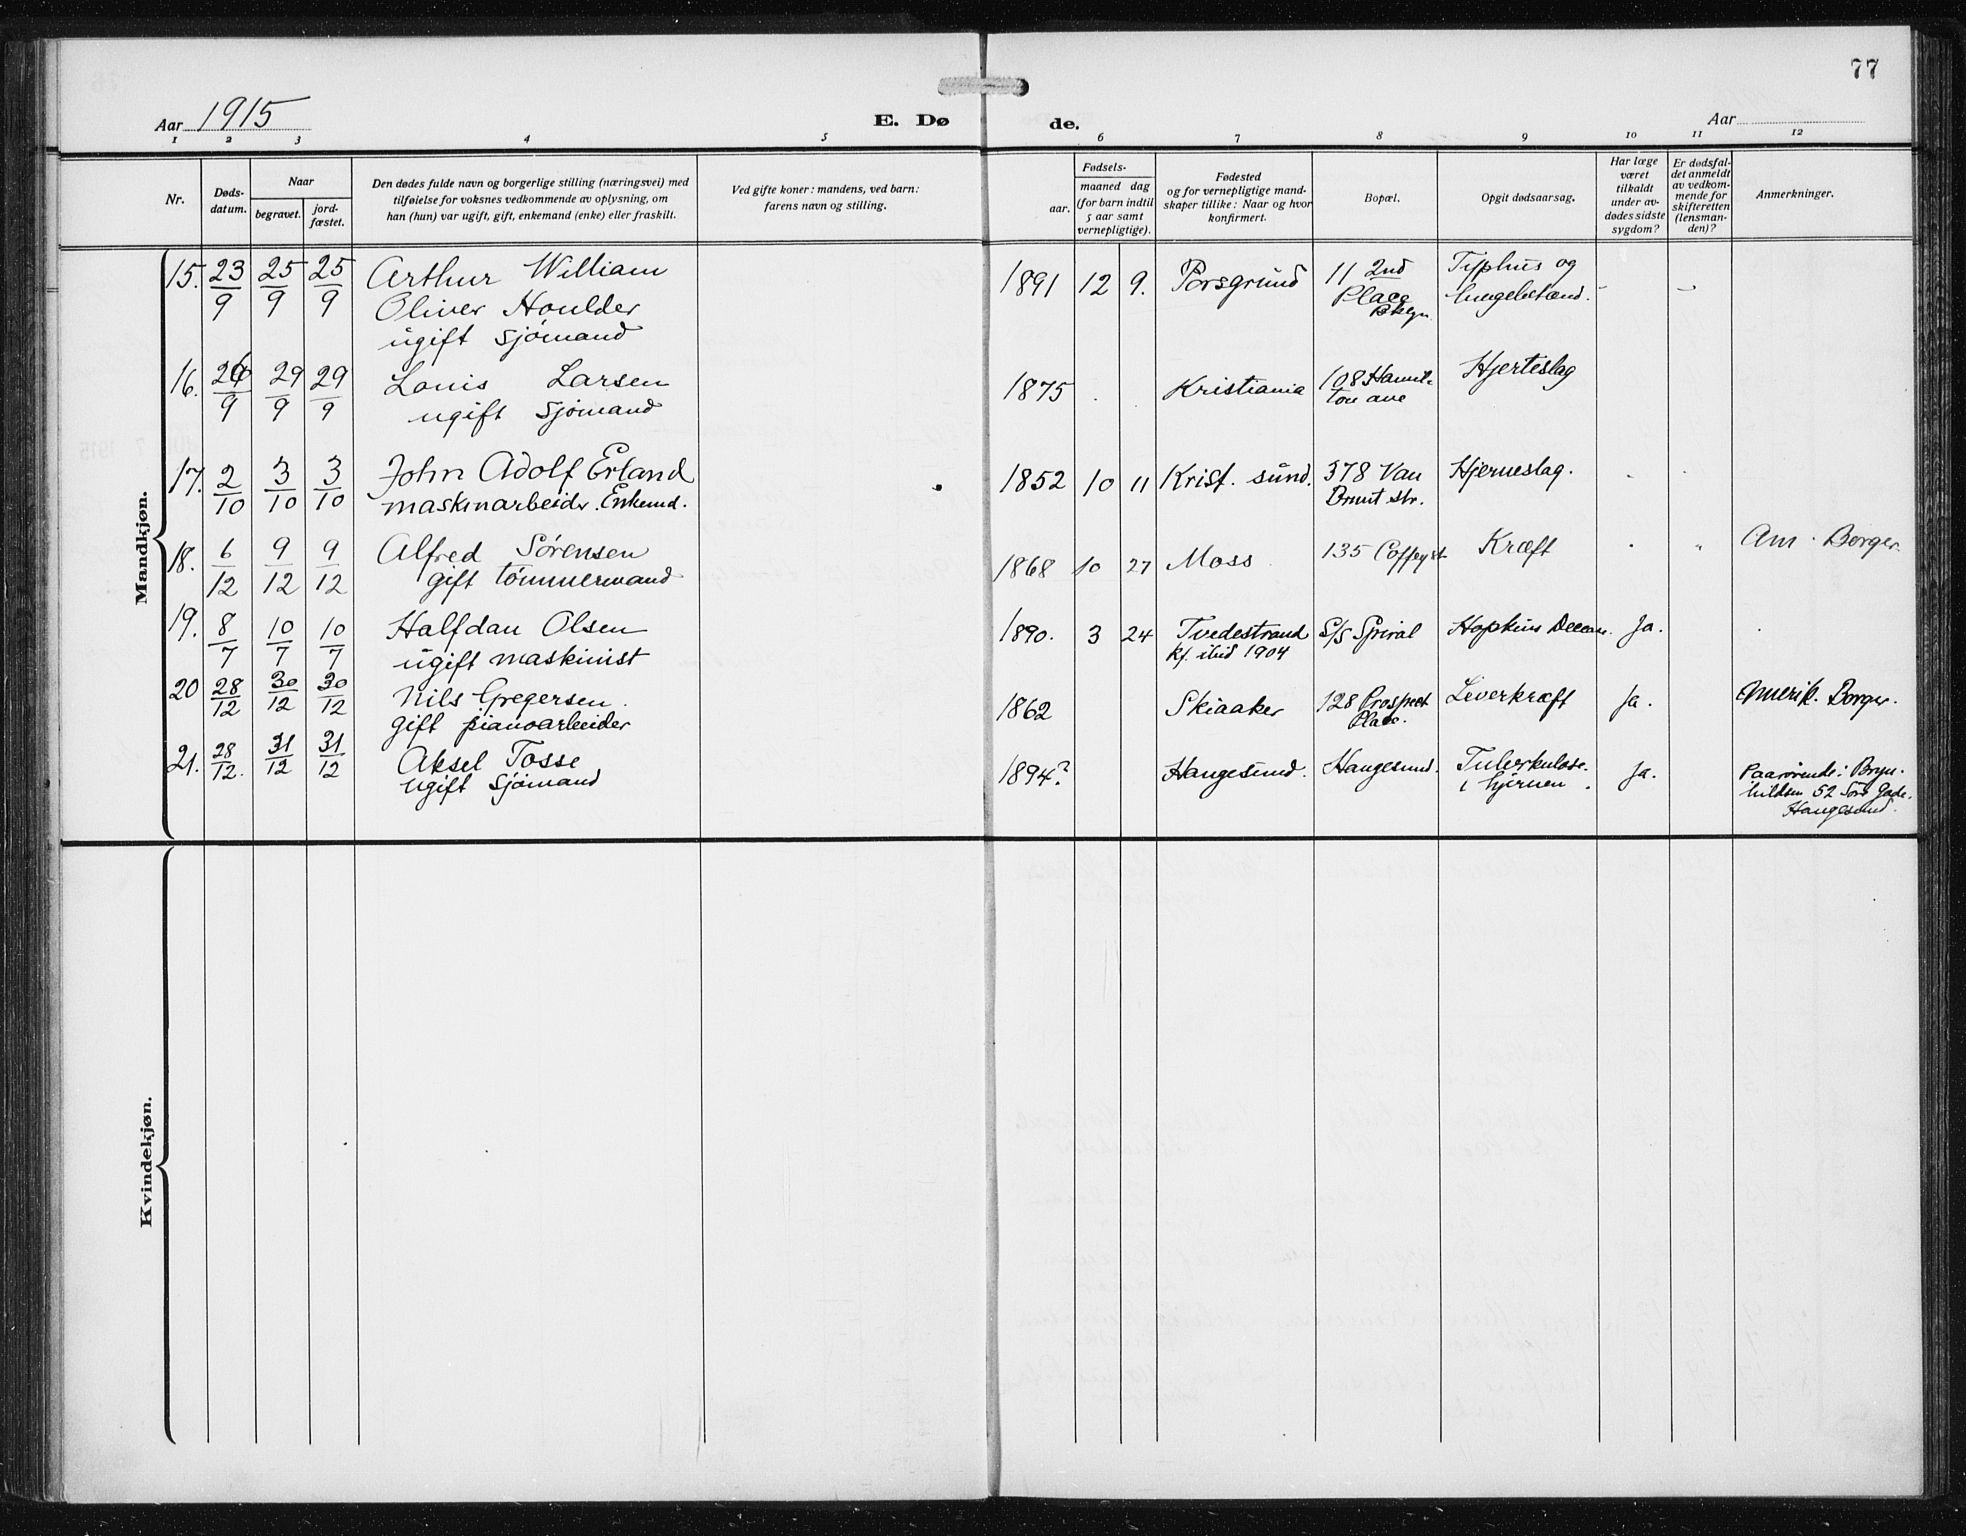 77
Aar 1915
E. Dø
de.
Aar
1 2 3 4 5 6 7 8 9 10 11 12
Nr.
Døds-
datum.
Naar
begravet.
jord-
fæstet.
Den dødes fulde navn og borgerlige stilling (næringsvei) med
tilføielse for voksnes vedkommende av oplysning, om
han (hun) var ugift, gift, enkemand (enke) eller fraskilt.
Ved gifte koner: mandens, ved barn:
farens navn og stilling.
Fødsels-
aar.
maaned dag
(for barn indtil
5 aar samt
vernepligtige).
Fødested
og for vernepligtige mand-
skaper tillike: Naar og hvor
konfirmert.
Bopæl.
Opgit dødsaarsag.
Har læge
været
tilkaldt
under av-
dødes sidste
sygdom?
Er dødsfal-
det anmeldt
av vedkom-
mende for
skifteretten
(lensman-
den)?
Anmerkninger.
Mandkjøn.
15. 23/9 25/9 25/9 Arthur William
Oliver Houlder
ugift Sjømand
1891 12 9. Porsgrund
11 2nd
Place
Bklyn.
Typhus og
lungebetænd.
16. 26/9 29/9 29/9 Louis Larsen
ugift Sjømand
1875 Kristiania
108 Hamil-
ton ave
Hjerteslag
17. 2/10 3/10 3/10 John Adolf Erland
maskinarbeider. Enkemd.
1852 10 11 Krist. sund.
378 Van
Brunt str.
Hjerneslag.
18. 6/12 9/12 9/12 Alfred Sørensen
gift tømmermand
1868 10 27 Moss
135 Coffey st
Kræft
Am. Borger.
19. 8/7 10/7 10/7 Halfdan Olsen
ugift maskinist
1890. 3 24 Tvedestrand
kf. ibid 1904
S/S Spiral
Hopkins Decease.
Ja.
20 28/12 30/12 30/12 Nils Gregersen.
gift pianoarbeider
1862 Skiaaker
128 Prospect
Place.
Leverkræft
Ja.
Amerik. Borger.
21. 28/12. 31/12 31/12 Aksel Tosse
Ugift Sjømand
1894? Haugesund.
Haugesund.
Tuberkulose
i hjernen.
Ja.
Paarørende: Bryn-
hildsen 52 Søre Gade.
Haugesund.
Kvindekjøn.